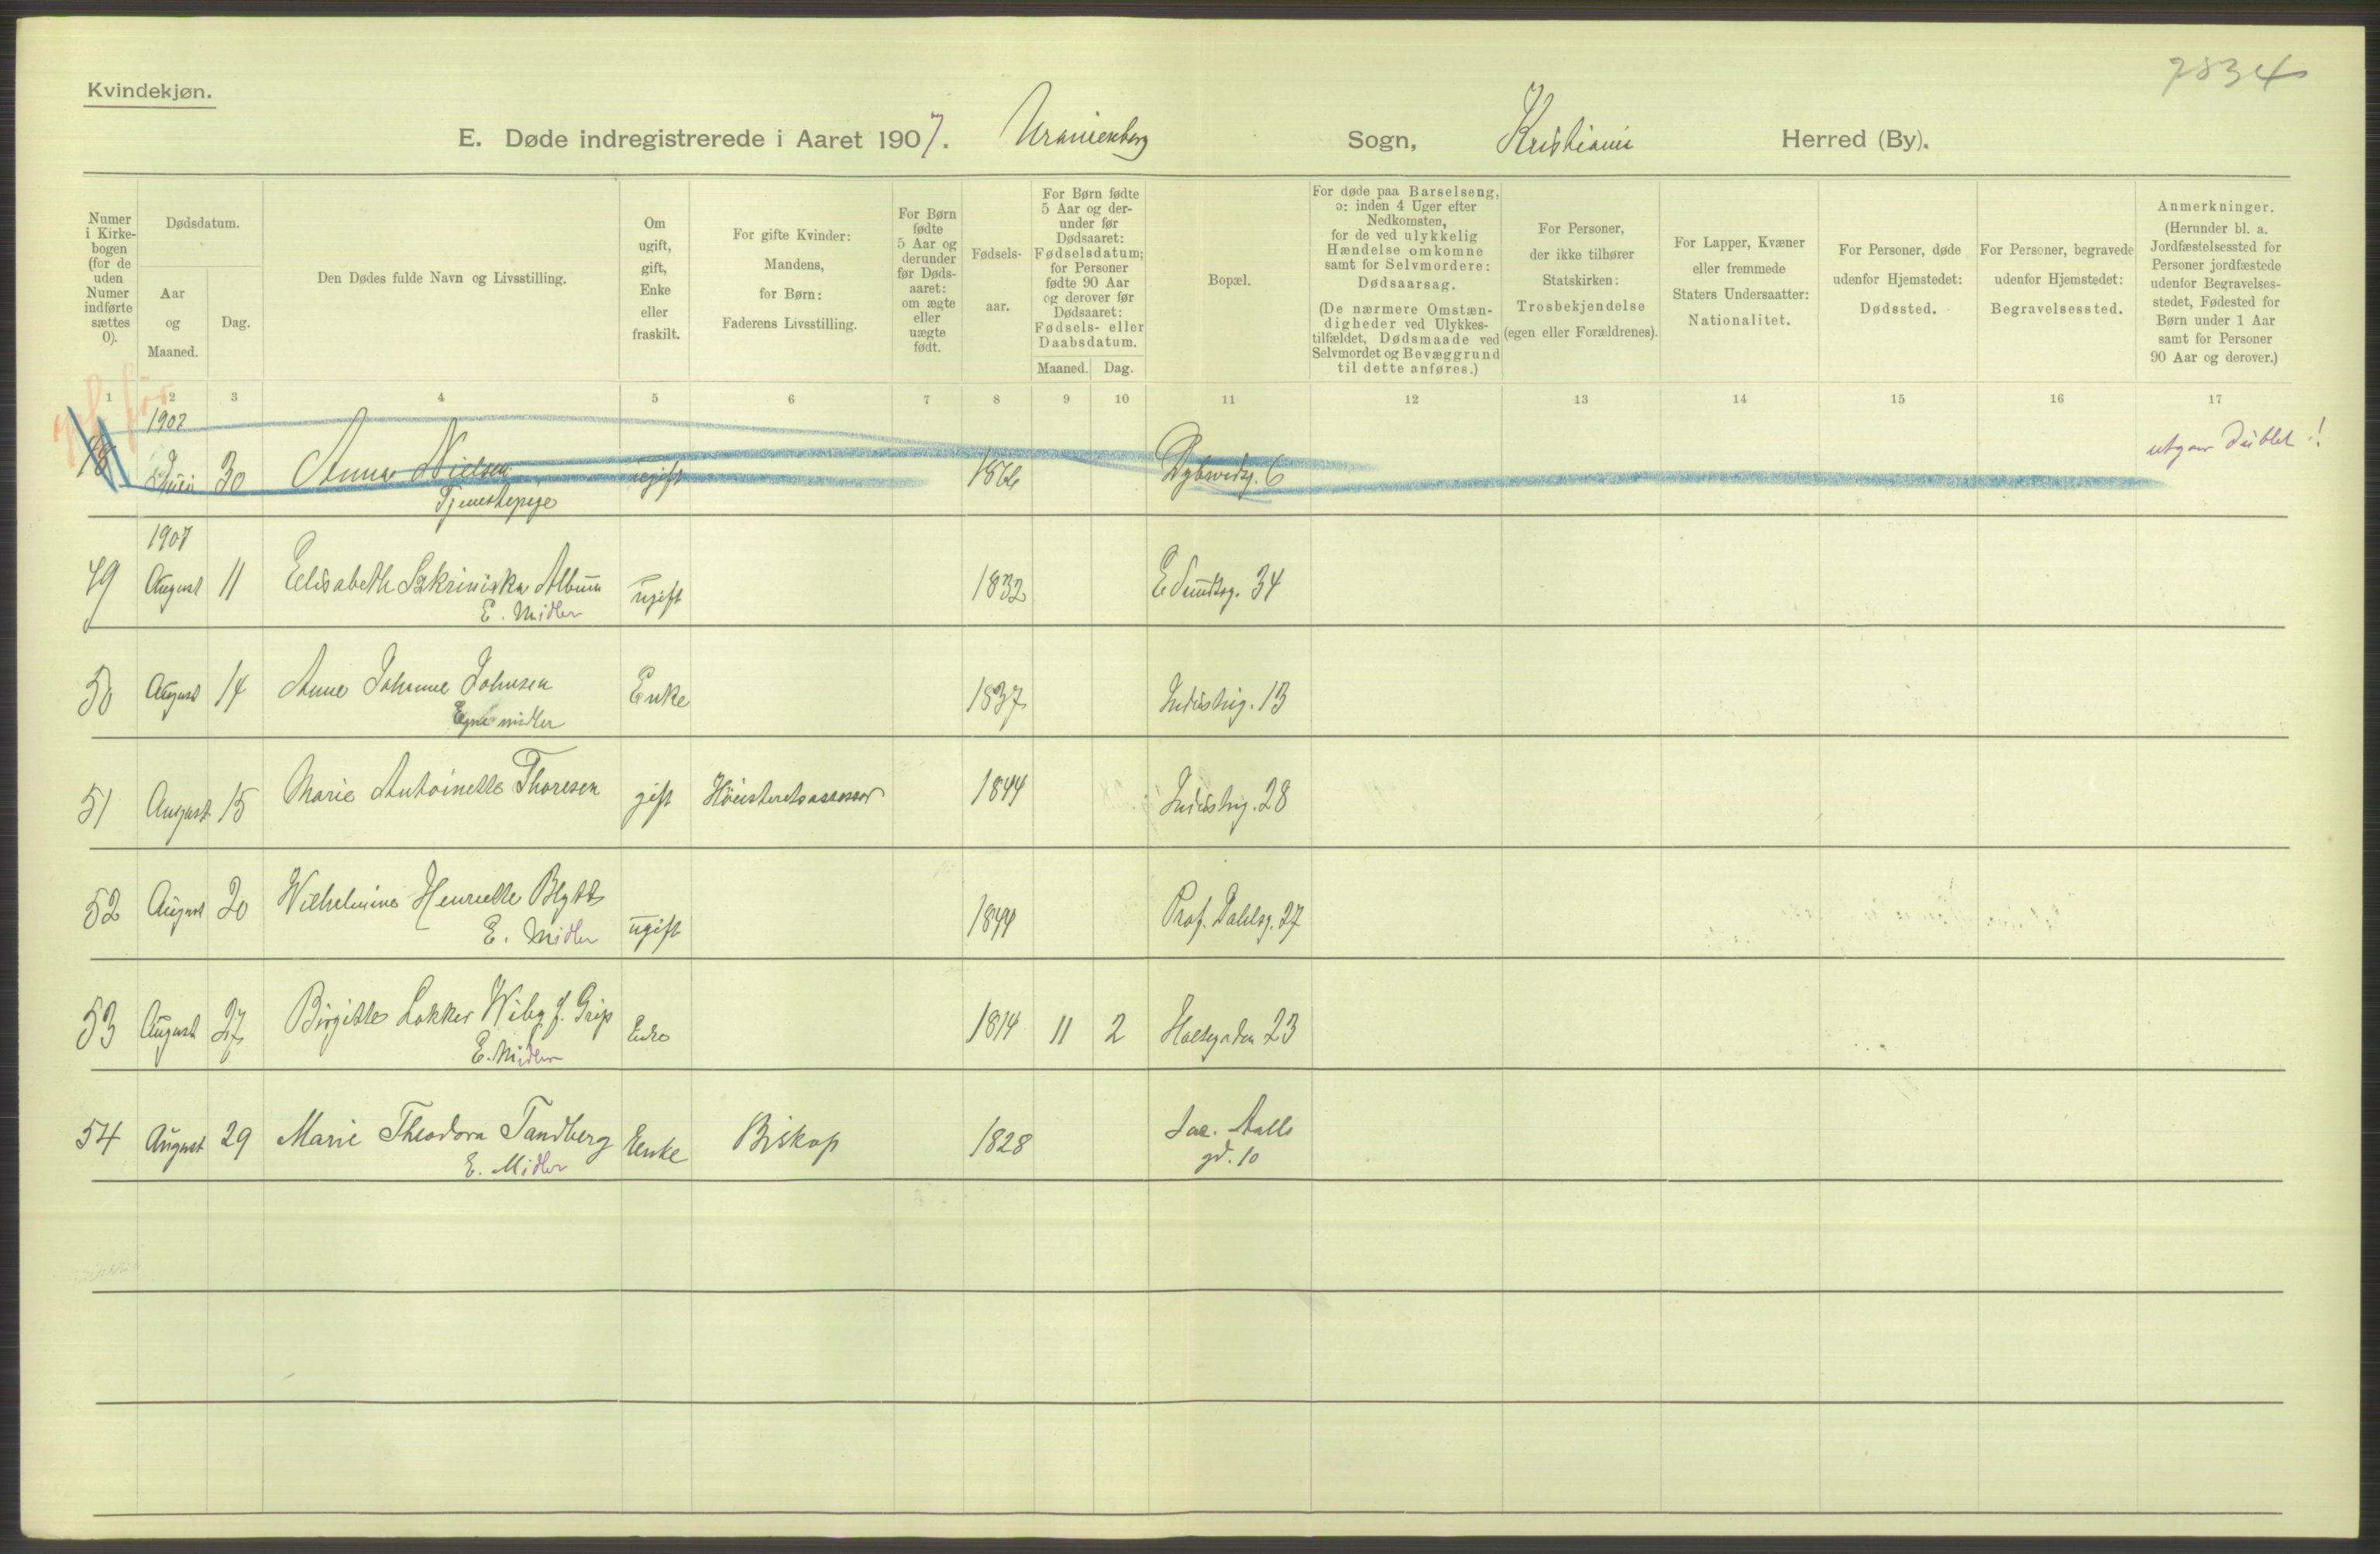 7834
Kvindekjøn.
E. Døde indregistrerede i Aaret 1907. Uranienborg Sogn, Kristiania Herred (By).
Numer i Kirkebogen (for de uden Numer indførte sættes 0).
Dødsdatum.
Aar og Maaned.
Dag.
Den Dødes fulde Navn og Livsstilling.
Om ugift, gift, Enke eller fraskilt.
For gifte Kvinder: Mandens, for Børn: Faderens Livsstilling.
For Børn fødte 5 Aar og derunder før Dødsaaret: om ægte eller uægte født.
Fødselsaar.
For Børn fødte 5 Aar og derunder før Dødsaaret: Fødselsdatum; for Personer fødte 90 Aar og derover før Dødsaaret: Fødsels- eller Daabsdatum.
Maaned. Dag.
Bopæl.
For døde paa Barselseng, ɔ: inden 4 Uger efter Nedkomsten, for de ved ulykkelig Hændelse omkomne samt for Selvmordere: Dødsaarsag.
(De nærmere Omstændigheder ved Ulykkestilfældet, Dødsmaade ved Selvmordet og Bevæggrund til dette anføres.)
For Personer, der ikke tilhører Statskirken: Trosbekjendelse (egen eller Forældrenes).
For Lapper, Kvæner eller fremmede Staters Undersaatter: Nationalitet.
For Personer, døde udenfor Hjemstedet: Dødssted.
For Personer, begravede udenfor Hjemstedet: Begravelsessted.
Anmerkninger. (Herunder bl. a. Jordfæstelsessted for Personer jordfæstede udenfor Begravelsesstedet, Fødested for Børn under 1 Aar samt for Personer 90 Aar og derover.)
1 2 3 4 5 6 7 8 9 10 11 12 13 14 15 16 17
1907
18 Juni 30 Anna Nielsen ugift Dybwadsg. 6 utgaar Dublet!
Tjenestepige
1907
49 August 11 Elisabeth Album ugift 1832 E Sundtsg. 34
E. Midler
50 August 14 Anne Johanne Johnsen Enke 1837 Industrig. 13
Egne midler
51 August 15 Marie Antoinette Thoresen gift Höiesteretsassessor 1844 Industrig. 28
52 August 20 Wilhelmine Henriette Blytt ugift 1844 Prof. Dahlsg. 27
E. Midler
53 August 27 Birgitte Lokker Wiby f. Grip Enke 1814 11 2 Holtegaden 23
E. Midler
54 August 29 Marie Theodora Tandberg Enke Biskop 1828 Jac. Aalls
E. Midler gd. 10